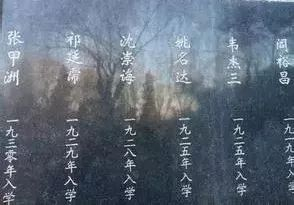 阎裕昌
韦杰三
一九二五年入学
姚名达
一九二五年入学
沈崇诲
一九二八年入学
祁延霈
一九二九年入学
张甲洲
一九三零年入学